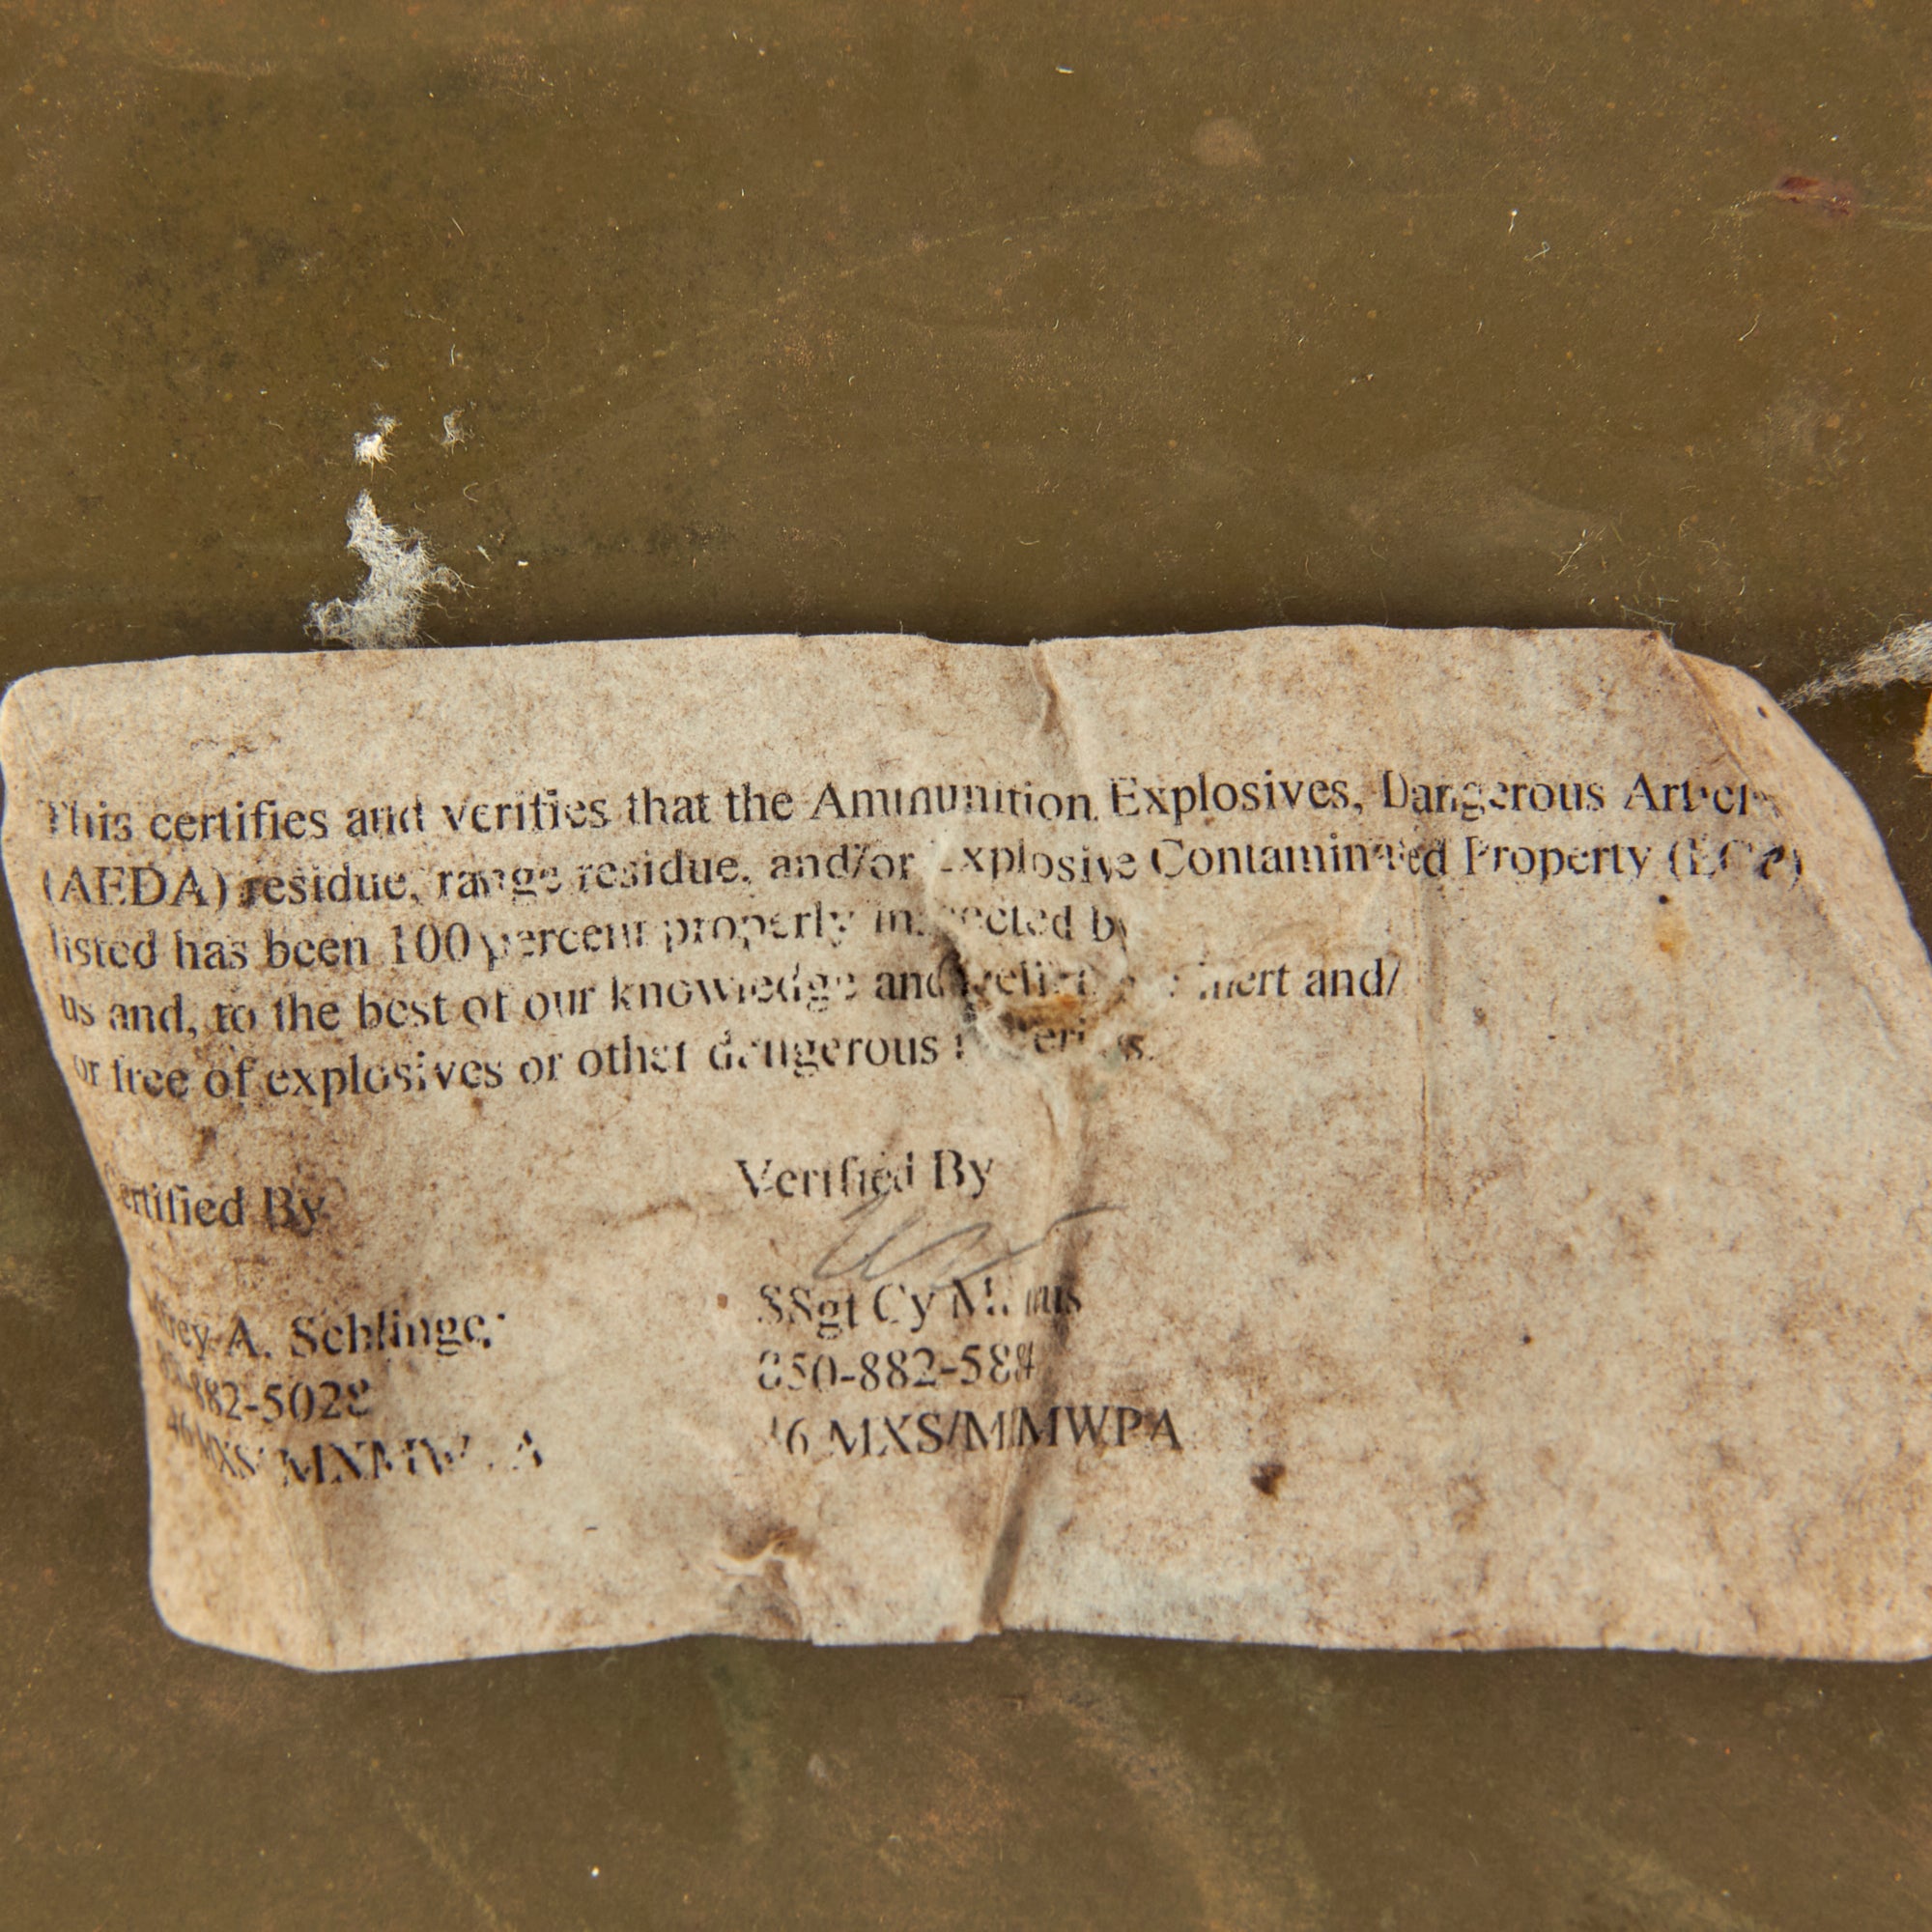 This certifies and verifies that the Ammunition, Explosives, Dangerous
(AEDA) residue, range residue, and/or Explosive Contaminated Property
listed has been 100 percent properly inspected by
us and, to the best of our knowledge and belief inert and/
or free of explosives or other dangerous
Certified By
Verified By
A. Schlinger
882-5028
SSgt Cy
850-882-
46 MXS/MXMWPA